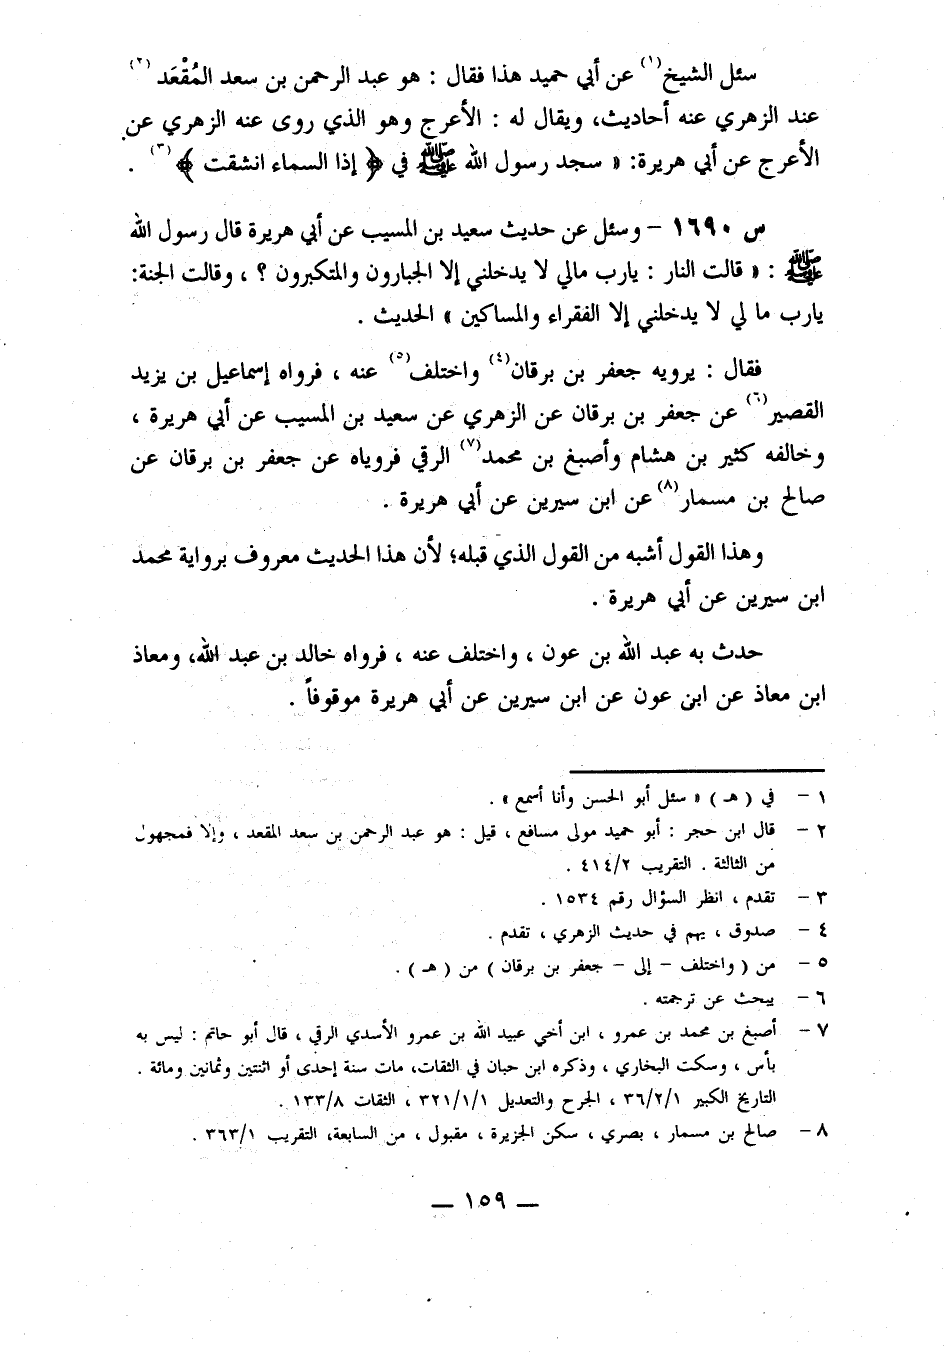 سئل الشيخ(١) عن أبي حميد هذا فقال : هو عبد الرحمن بن سعد المُقْعَد(٢)
عند الزهري عنه أحاديث، ويقال له : الأعرج وهو الذي روى عنه الزهري عن
الأعرج عن أبي هريرة: « سجد رسول الله ﷺ في ﴿ إذا السماء انشقت ﴾(٣) .
س ١٦٩٠ – وسئل عن حديث سعيد بن المسيب عن أبي هريرة قال رسول الله
ﷺ : « قالت النار : يارب مالي لا يدخلني إلا الجبارون والمتكبرون ؟ ، وقالت الجنة:
يارب ما لي لا يدخلني إلا الفقراء والمساكين » الحديث .
فقال : يرويه جعفر بن برقان(٤) واختلف(٥) عنه ، فرواه إسماعيل بن يزيد
القصير(٦) عن جعفر بن برقان عن الزهري عن سعيد بن المسيب عن أبي هريرة ،
وخالفه كثير بن هشام وأصبغ بن محمد(٧) الرقي فروياه عن جعفر بن برقان عن
صالح بن مسمار(٨) عن ابن سيرين عن أبي هريرة .
وهذا القول أشبه من القول الذي قبله؛ لأن هذا الحديث معروف برواية محمد
ابن سيرين عن أبي هريرة .
حدث به عبد الله بن عون ، واختلف عنه ، فرواه خالد بن عبد الله، ومعاذ
ابن معاذ عن ابن عون عن ابن سيرين عن أبي هريرة موقوفاً .
١ – في ( هـ ) « سئل أبو الحسن وأنا أسمع » .
٢ – قال ابن حجر : أبو حميد مولى مسافع ، قيل : هو عبد الرحمن بن سعد المقعد ، وإلا فمجهول
من الثالثة . التقريب ٤١٤/٢ .
٣ – تقدم ، انظر السؤال رقم ١٥٣٤ .
٤ – صدوق ، يهم في حديث الزهري ، تقدم .
٥ – من ( واختلف – إلى – جعفر بن برقان ) من ( هـ ) .
٦ – يبحث عن ترجمته .
٧ – أصبغ بن محمد بن عمرو ، ابن أخي عبيد الله بن عمرو الأسدي الرقي ، قال أبو حاتم : ليس به
بأس ، وسكت البخاري ، وذكره ابن حبان في الثقات، مات سنة إحدى أو اثنتين وثمانين ومائة .
التاريخ الكبير ٣٦/٢/١ ، الجرح والتعديل ٣٢١/١/١ ، الثقات ١٣٣/٨ .
٨ – صالح بن مسمار ، بصري ، سكن الجزيرة ، مقبول ، من السابعة، التقريب ٣٦٣/١ .
— ١٥٩ —